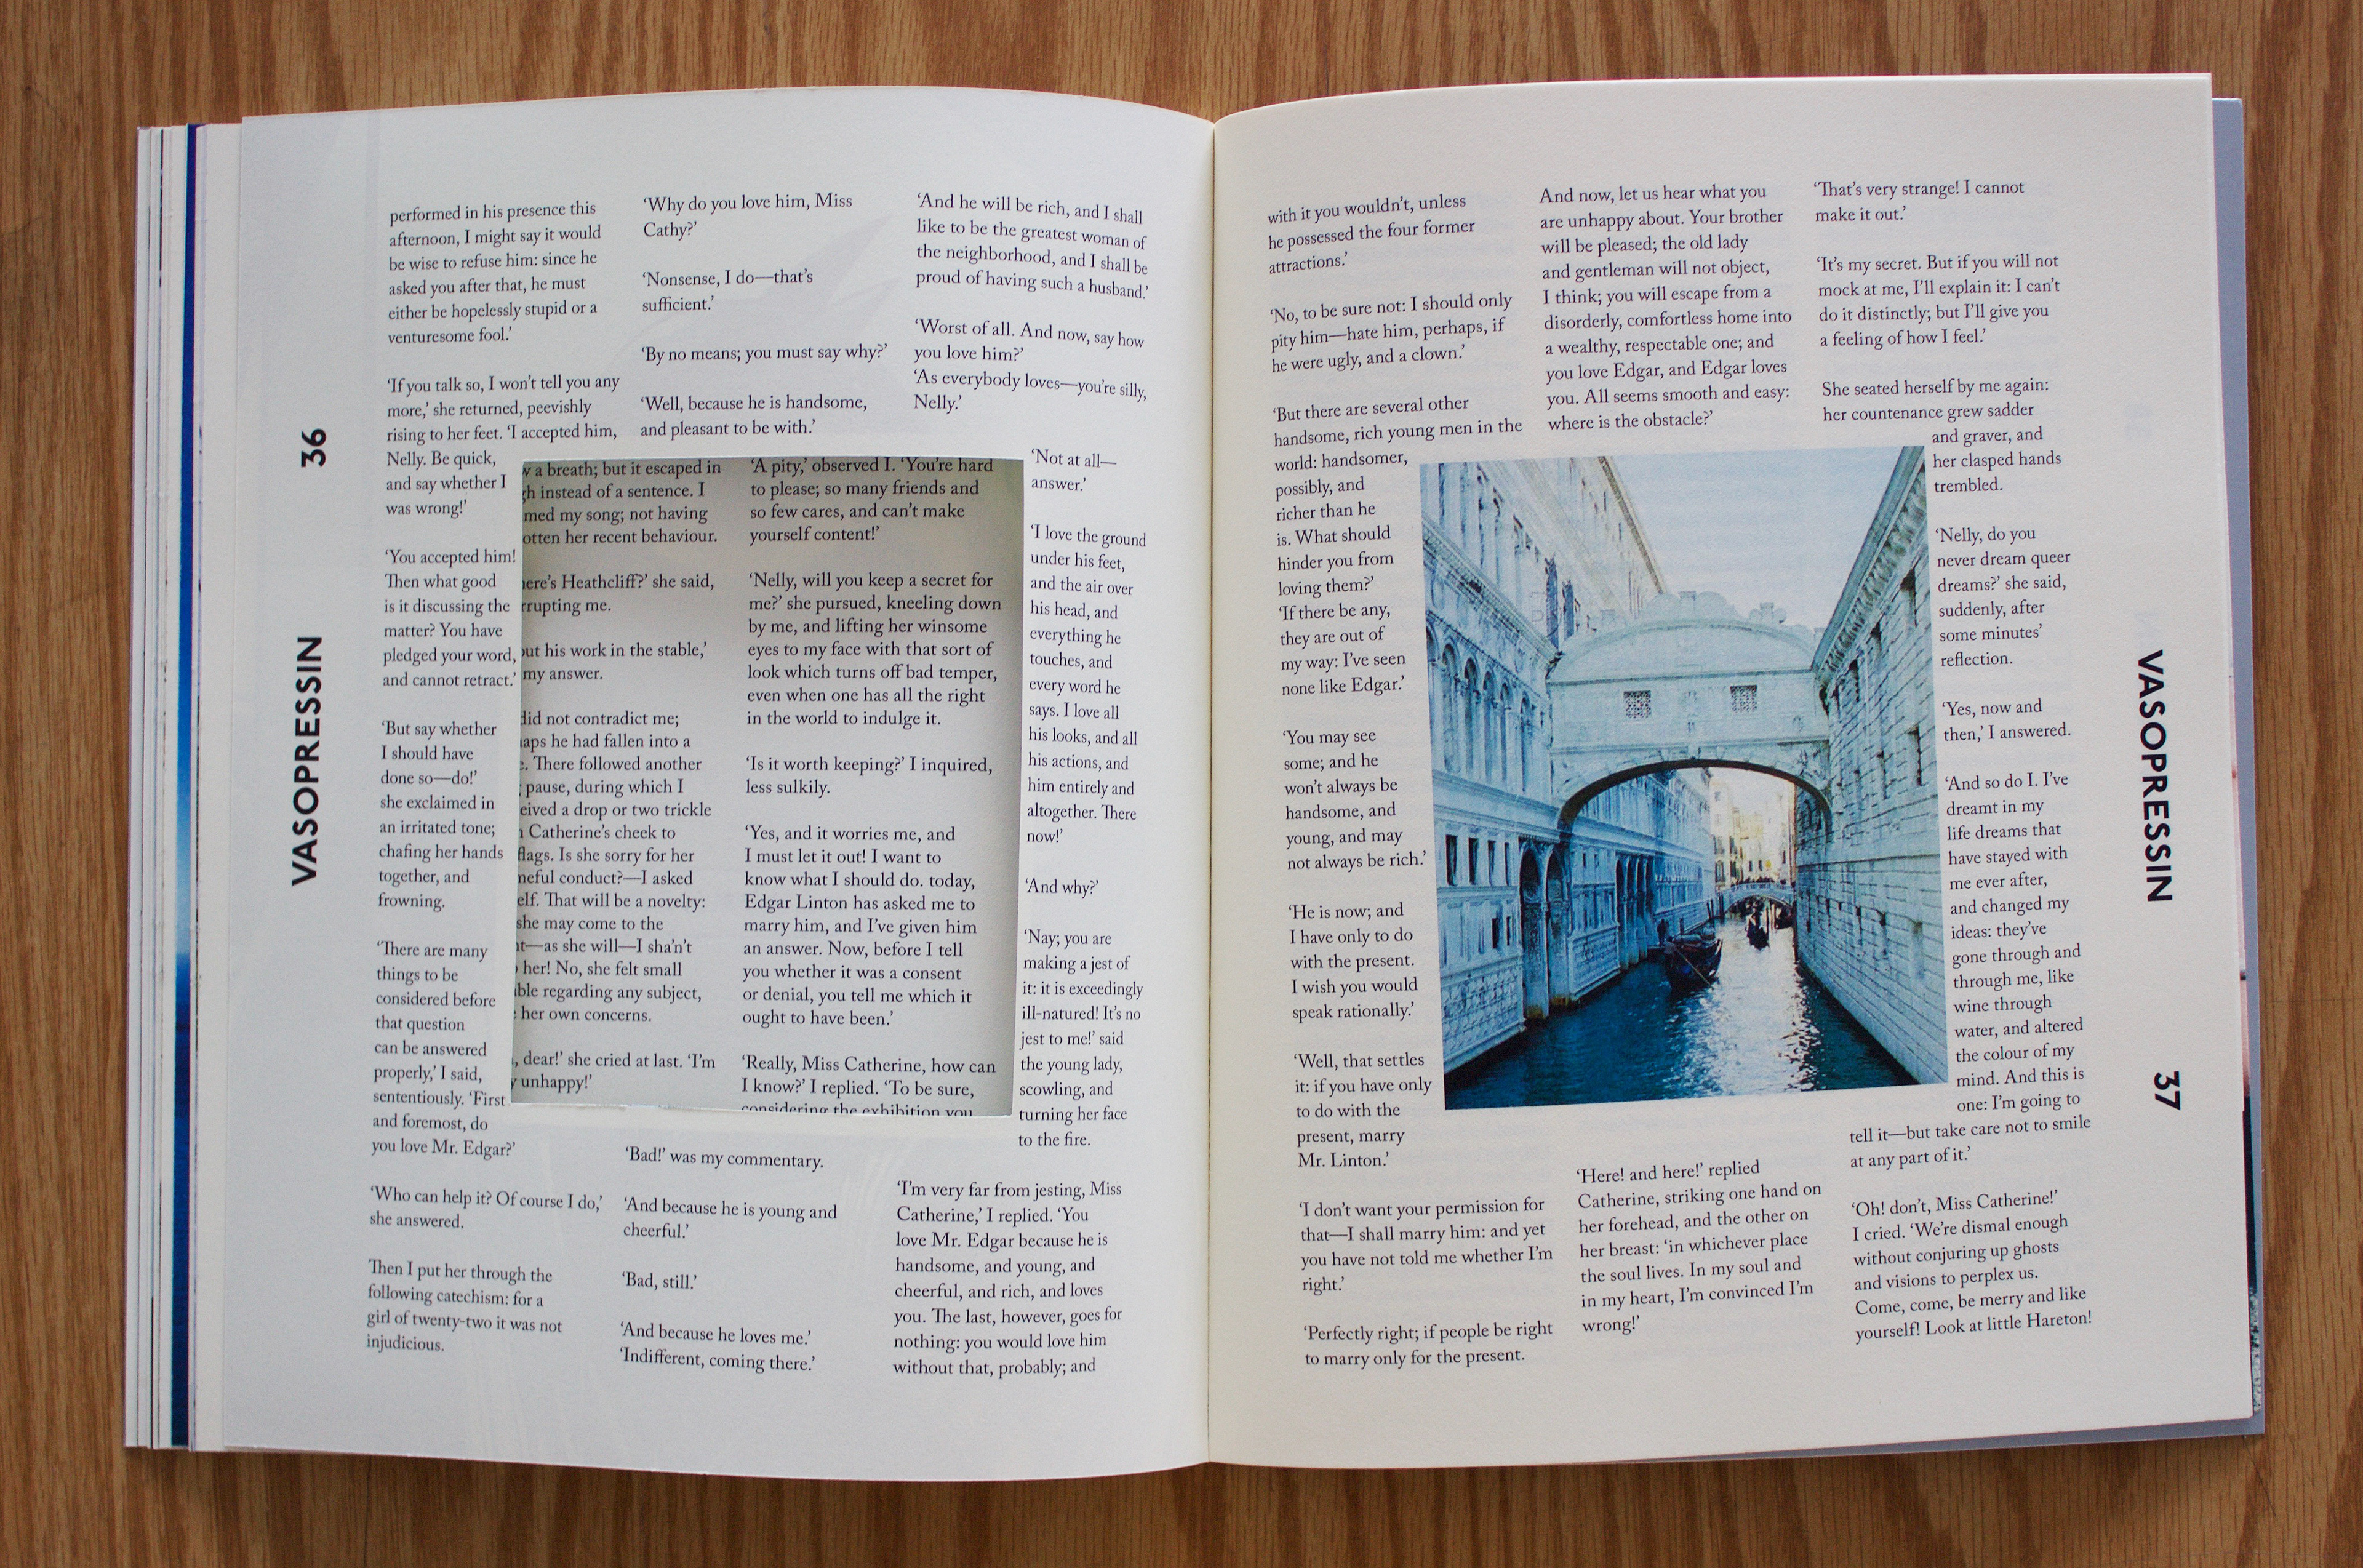 36
VASOPRESSIN
performed in his presence this
afternoon, I might say it would
be wise to refuse him: since he
asked you after that, he must
either be hopelessly stupid or a
venturesome fool.’
‘If you talk so, I won’t tell you any
more,’ she returned, peevishly
rising to her feet. ‘I accepted him,
Nelly. Be quick,
and say whether I
was wrong!’
‘You accepted him!
Then what good
is it discussing the
matter? You have
pledged your word,
and cannot retract.’
‘But say whether
I should have
done so—do!’
she exclaimed in
an irritated tone;
chafing her hands
together, and
frowning.
‘There are many
things to be
considered before
that question
can be answered
properly,’ I said,
sententiously. ‘First
and foremost, do
you love Mr. Edgar?’
‘Who can help it? Of course I do,’
she answered.
Then I put her through the
following catechism: for a
girl of twenty-two it was not
injudicious.
‘Why do you love him, Miss
Cathy?’
‘Nonsense, I do—that’s
sufficient.’
‘By no means; you must say why?’
‘Well, because he is handsome,
and pleasant to be with.’
a breath; but it escaped in
instead of a sentence. I
med my song; not having
otten her recent behaviour.
ere’s Heathcliff?’ she said,
rrupting me.
ut his work in the stable,’
my answer.
did not contradict me;
aps he had fallen into a
. There followed another
pause, during which I
eived a drop or two trickle
Catherine’s cheek to
flags. Is she sorry for her
neful conduct?—I asked
elf. That will be a novelty:
she may come to the
t—as she will—I sha’n’t
her! No, she felt small
ble regarding any subject,
her own concerns.
, dear!’ she cried at last. ‘I’m
unhappy!’
‘A pity,’ observed I. ‘You’re hard
to please; so many friends and
so few cares, and can’t make
yourself content!’
‘Nelly, will you keep a secret for
me?’ she pursued, kneeling down
by me, and lifting her winsome
eyes to my face with that sort of
look which turns off bad temper,
even when one has all the right
in the world to indulge it.
‘Is it worth keeping?’ I inquired,
less sulkily.
‘Yes, and it worries me, and
I must let it out! I want to
know what I should do. today,
Edgar Linton has asked me to
marry him, and I’ve given him
an answer. Now, before I tell
you whether it was a consent
or denial, you tell me which it
ought to have been.’
‘Really, Miss Catherine, how can
I know?’ I replied. ‘To be sure,
considering the exhibition you
‘Bad!’ was my commentary.
‘And because he is young and
cheerful.’
‘Bad, still.’
‘And because he loves me.’
‘Indifferent, coming there.’
‘And he will be rich, and I shall
like to be the greatest woman of
the neighborhood, and I shall be
proud of having such a husband.’
‘Worst of all. And now, say how
you love him?’
‘As everybody loves—you’re silly,
Nelly.’
‘Not at all—
answer.’
‘I love the ground
under his feet,
and the air over
his head, and
everything he
touches, and
every word he
says. I love all
his looks, and all
his actions, and
him entirely and
altogether. There
now!’
‘And why?’
‘Nay; you are
making a jest of
it: it is exceedingly
ill-natured! It’s no
jest to me!’ said
the young lady,
scowling, and
turning her face
to the fire.
‘I’m very far from jesting, Miss
Catherine,’ I replied. ‘You
love Mr. Edgar because he is
handsome, and young, and
cheerful, and rich, and loves
you. The last, however, goes for
nothing: you would love him
without that, probably; and
with it you wouldn’t, unless
he possessed the four former
attractions.’
‘No, to be sure not: I should only
pity him—hate him, perhaps, if
he were ugly, and a clown.’
‘But there are several other
handsome, rich young men in the
world: handsomer,
possibly, and
richer than he
is. What should
hinder you from
loving them?’
‘If there be any,
they are out of
my way: I’ve seen
none like Edgar.’
‘You may see
some; and he
won’t always be
handsome, and
young, and may
not always be rich.’
‘He is now; and
I have only to do
with the present.
I wish you would
speak rationally.’
‘Well, that settles
it: if you have only
to do with the
present, marry
Mr. Linton.’
‘I don’t want your permission for
that—I shall marry him: and yet
you have not told me whether I’m
right.’
‘Perfectly right; if people be right
to marry only for the present.
And now, let us hear what you
are unhappy about. Your brother
will be pleased; the old lady
and gentleman will not object,
I think; you will escape from a
disorderly, comfortless home into
a wealthy, respectable one; and
you love Edgar, and Edgar loves
you. All seems smooth and easy:
where is the obstacle?’
‘Here! and here!’ replied
Catherine, striking one hand on
her forehead, and the other on
her breast: ‘in whichever place
the soul lives. In my soul and
in my heart, I’m convinced I’m
wrong!’
‘That’s very strange! I cannot
make it out.’
‘It’s my secret. But if you will not
mock at me, I’ll explain it: I can’t
do it distinctly; but I’ll give you
a feeling of how I feel.’
She seated herself by me again:
her countenance grew sadder
and graver, and
her clasped hands
trembled.
‘Nelly, do you
never dream queer
dreams?’ she said,
suddenly, after
some minutes’
reflection.
‘Yes, now and
then,’ I answered.
‘And so do I. I’ve
dreamt in my
life dreams that
have stayed with
me ever after,
and changed my
ideas: they’ve
gone through and
through me, like
wine through
water, and altered
the colour of my
mind. And this is
one: I’m going to
tell it—but take care not to smile
at any part of it.’
‘Oh! don’t, Miss Catherine!’
I cried. ‘We’re dismal enough
without conjuring up ghosts
and visions to perplex us.
Come, come, be merry and like
yourself! Look at little Hareton!
VASOPRESSIN
37